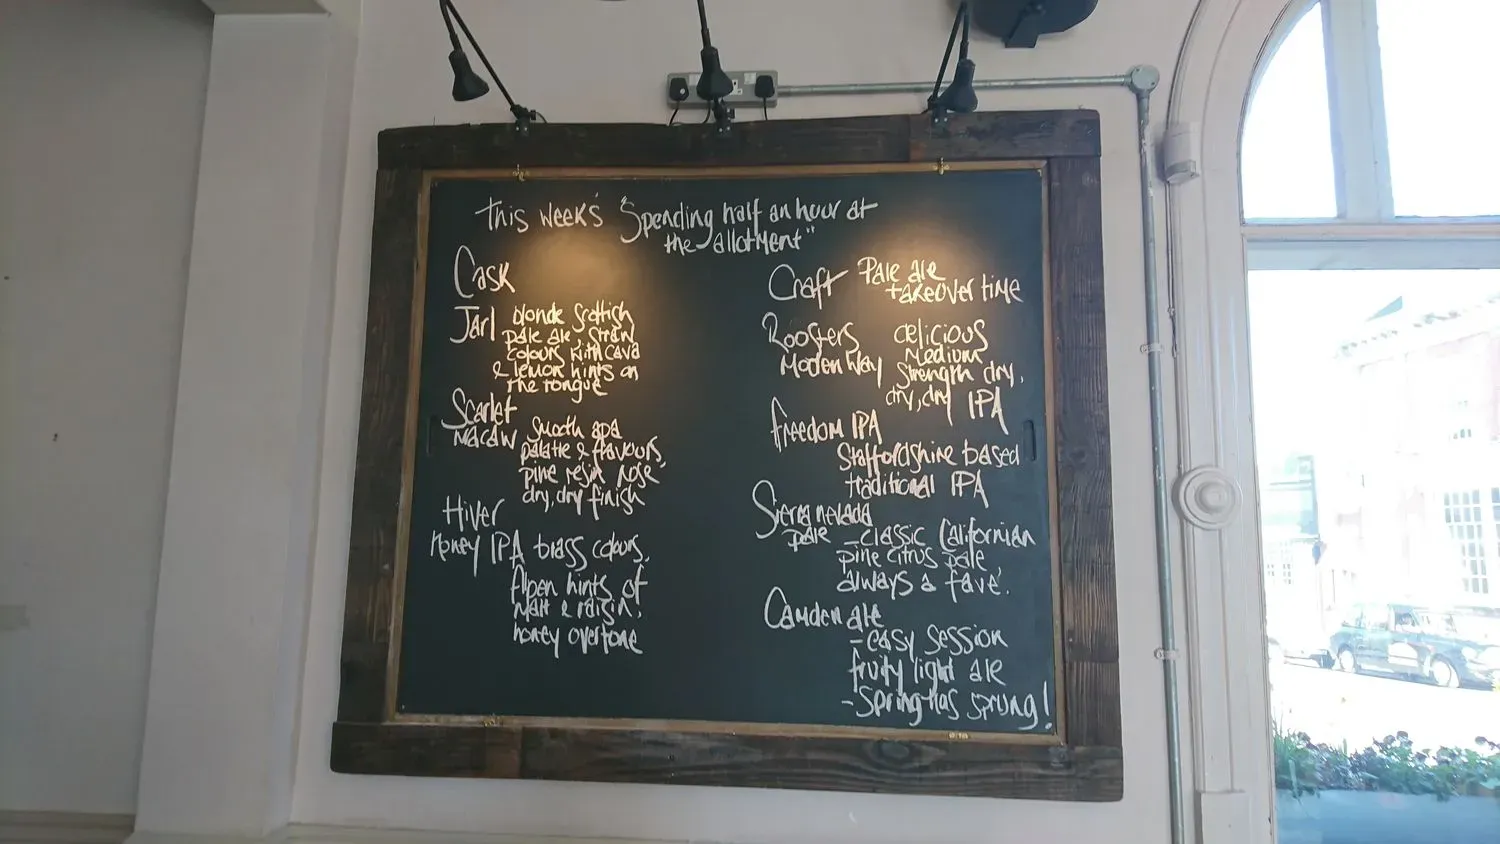 This week's "Spending half an hour at
the allotment"
Cask
Jarl blonde Scottish
pale ale, straw
colours with cava
& lemon hints on
the tongue
Scarlet
Macaw smooth apa
palate & flavours,
pine resin nose,
dry, dry finish
Hiver
Honey IPA brass colours,
Alpen hints of
malt & raisin,
honey overtone
Craft Pale ale
takeover time
Roosters delicious
Modern Way Medium
Strength dry,
dry, dry IPA
Freedom IPA
Staffordshire based
traditional IPA
Sierra nevada
pale - classic Californian
pine citrus pale,
always a fave.
Camden ale
- easy session
fruity light ale
- Spring has sprung!